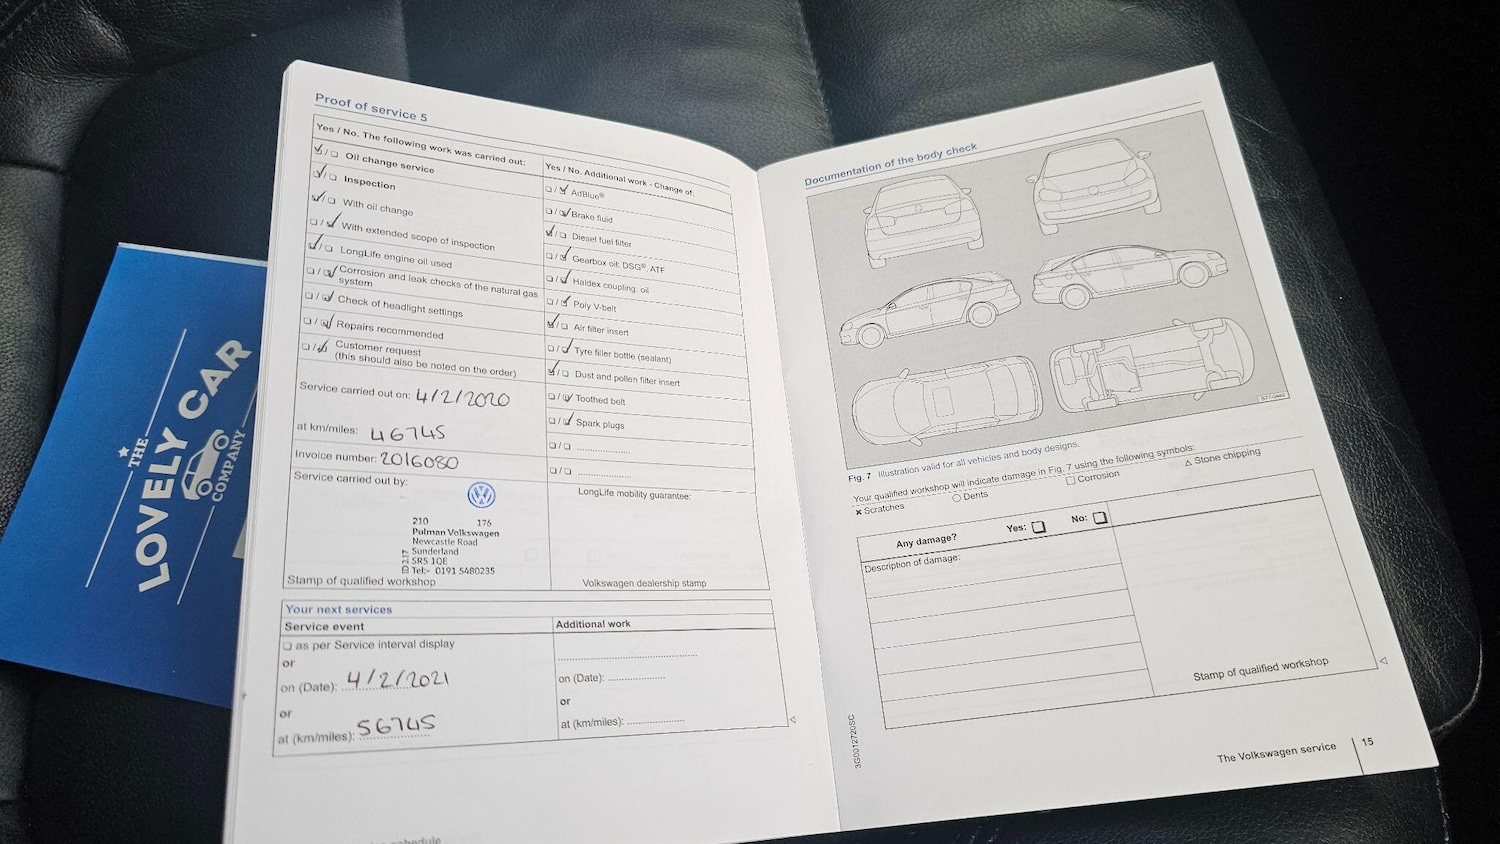 THE
LOVELY CAR
COMPANY
Proof of service 5
Yes / No. The following work was carried out:
☑/☐ Oil change service
☑/☐ Inspection
☑/☐ With oil change
☐/☑ With extended scope of inspection
☑/☐ LongLife engine oil used
☐/☑ Corrosion and leak checks of the natural gas
system
☐/☑ Check of headlight settings
☐/☑ Repairs recommended
☐/☑ Customer request
(this should also be noted on the order)
Service carried out on: 4/2/2020
at km/miles: 46745
Invoice number: 2016080
Service carried out by:
210 176
Pulman Volkswagen
Newcastle Road
Sunderland
SR5 1QE
Tel:- 0191 5480235
Stamp of qualified workshop
Yes / No. Additional work - Change of:
☐/☑ AdBlue®
☐/☑ Brake fluid
☑/☐ Diesel fuel filter
☐/☑ Gearbox oil: DSG®, ATF
☐/☑ Haldex coupling, oil
☐/☑ Poly V-belt
☑/☐ Air filter insert
☐/☑ Tyre filler bottle (sealant)
☑/☐ Dust and pollen filter insert
☐/☑ Toothed belt
☐/☑ Spark plugs
☐/☐ ....................
☐/☐ ....................
LongLife mobility guarantee:
Volkswagen dealership stamp
Your next services
Service event
☐ as per Service interval display
or
on (Date): 4/2/2021
or
at (km/miles): 56745
Additional work
on (Date): ....................
or
at (km/miles): ....................
Documentation of the body check
Fig. 7 Illustration valid for all vehicles and body designs.
Your qualified workshop will indicate damage in Fig. 7 using the following symbols:
✖ Scratches ○ Dents ☐ Corrosion △ Stone chipping
Any damage? Yes: ☐ No: ☐
Description of damage:
Stamp of qualified workshop
3G0012720SC
The Volkswagen service 15